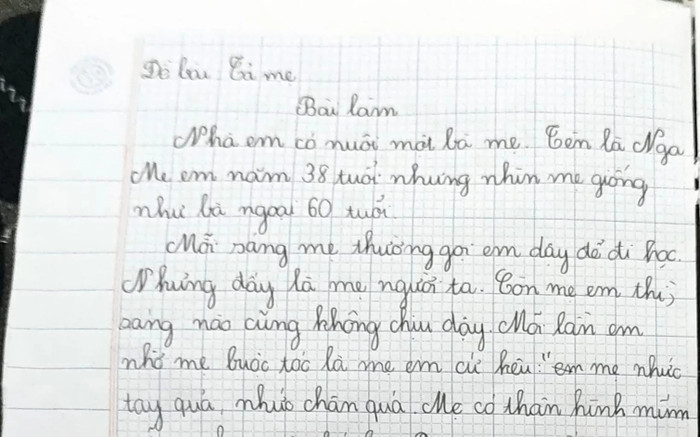 Đề bài: Tả mẹ
Bài làm
Nhà em có nuôi một bà mẹ. Tên là Nga
Mẹ em năm 38 tuổi nhưng nhìn mẹ giống
như bà ngoại 60 tuổi.
Mỗi sáng mẹ thường gọi em dậy để đi học.
Nhưng đấy là mẹ người ta. Còn mẹ em thì,
sáng nào cũng không chịu dậy. Mỗi lần em
nhờ mẹ buộc tóc là mẹ em cứ kêu: "em mẹ nhức
tay quá, nhức chân quá. Mẹ có thân hình mũm